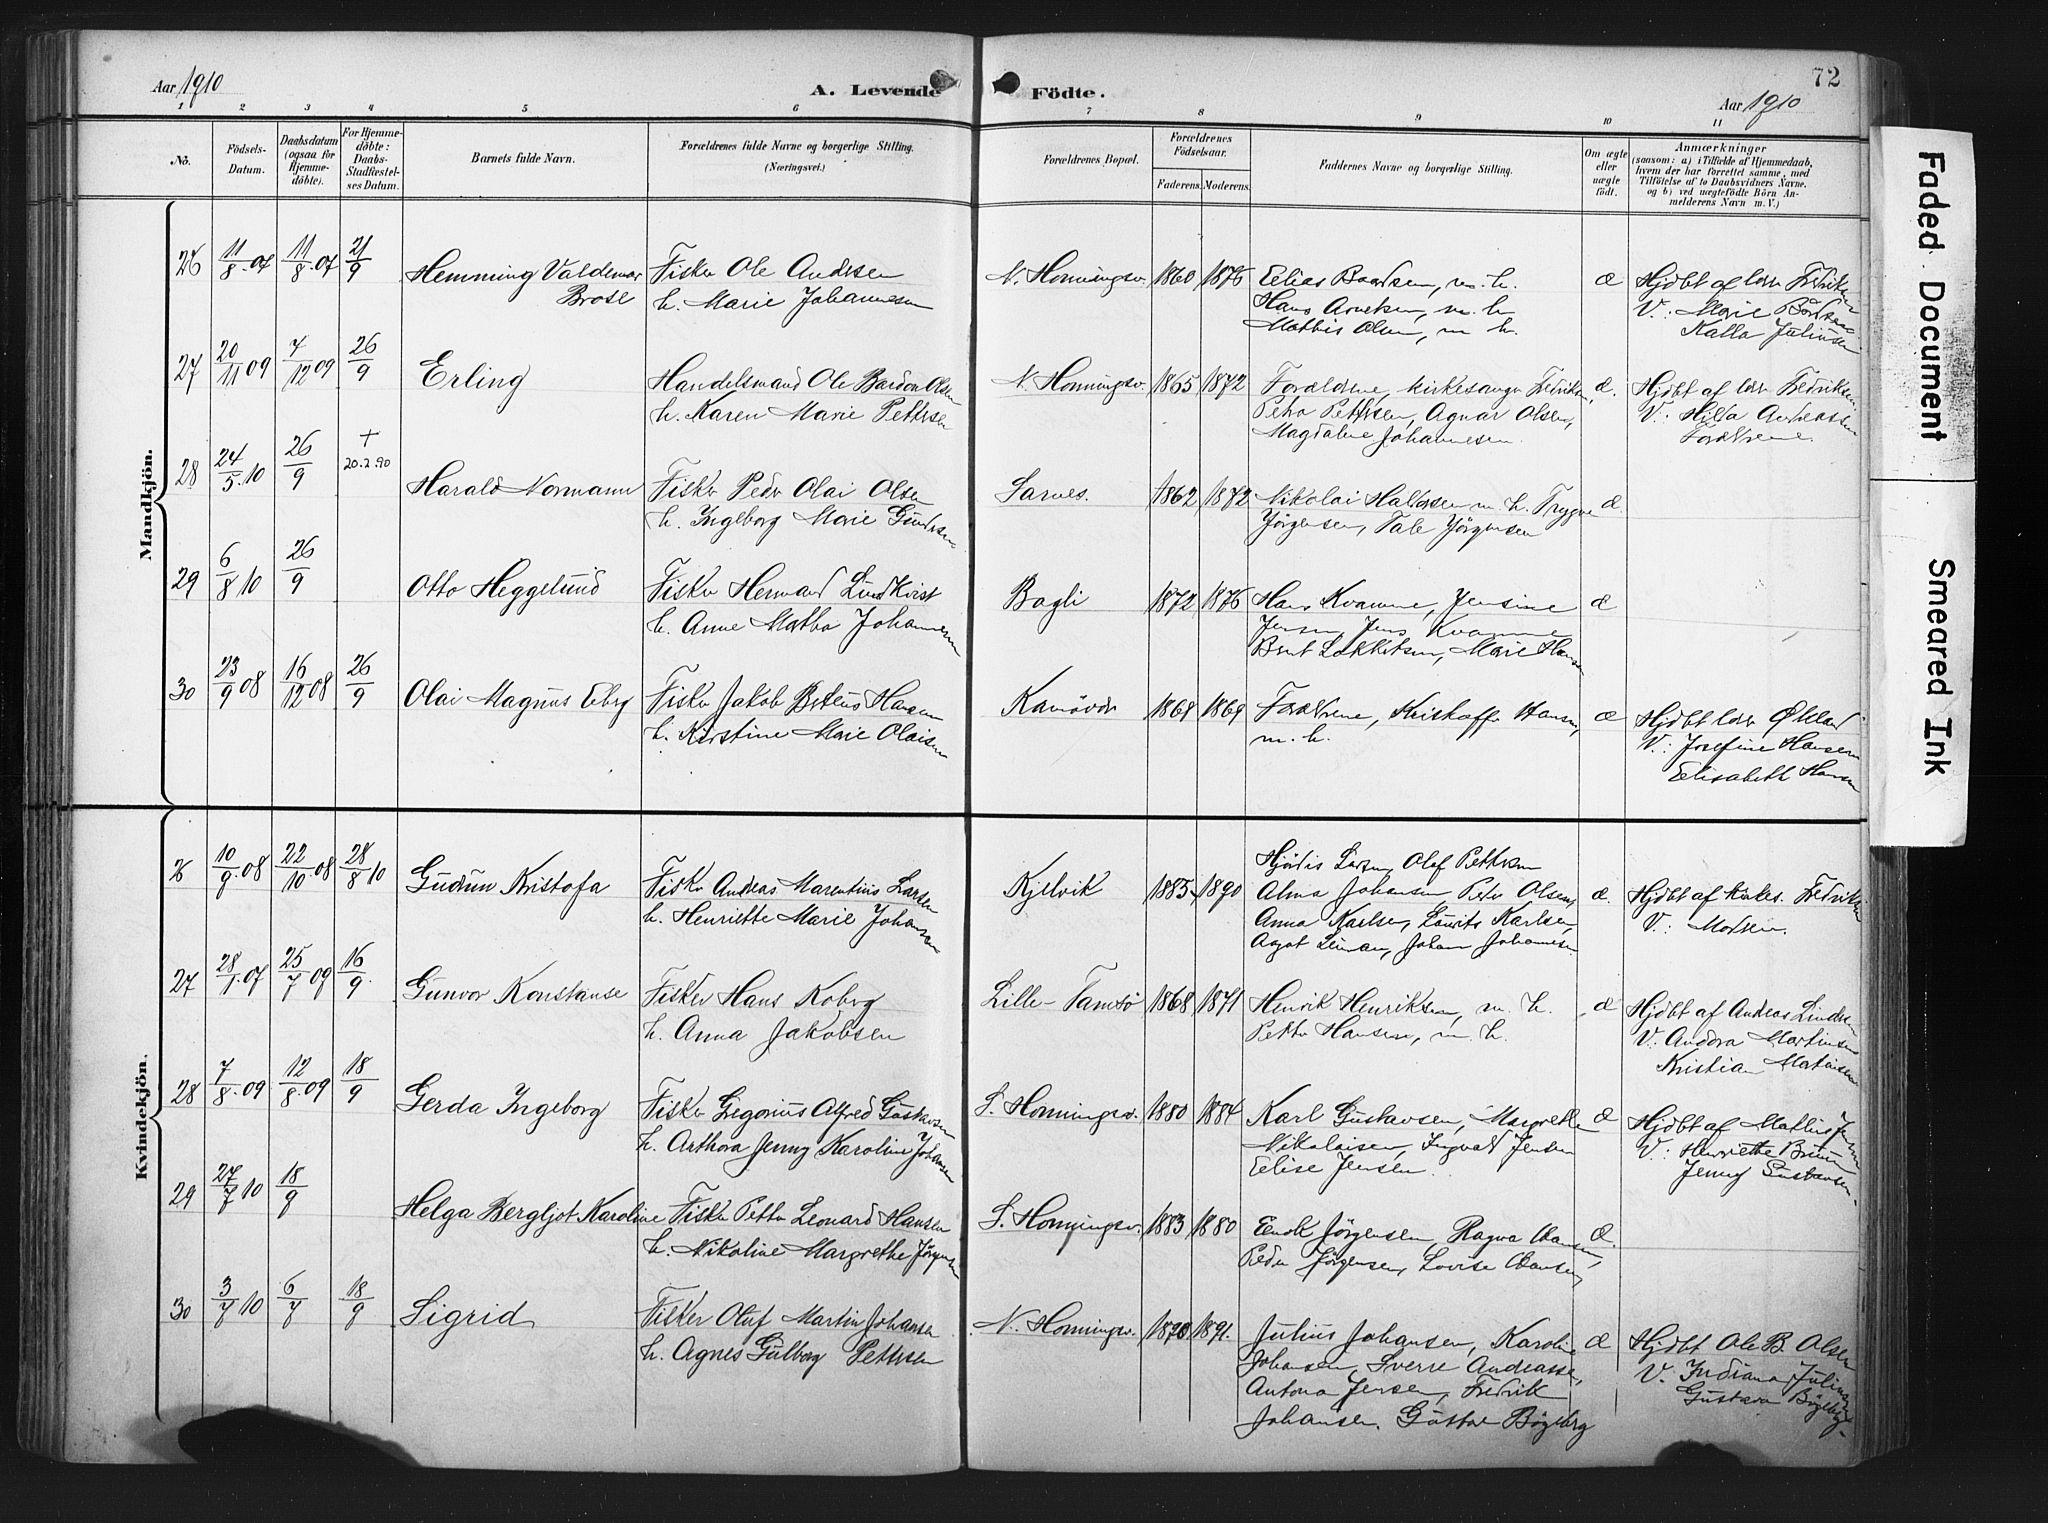 Aar 1910
A. Levende Födte.
72
Aar 1910
1 2 3 4 5 6 7 8 9 10 11
No.
Födsels-Datum.
Daabsdatum (ogsaa for Hjemme-döbte).
For Hjemme-döbte: Daabs-Stadfæstel-ses Datum.
Barnets fulde Navn.
Forældrenes fulde Navne og borgerlige Stilling.
(Næringsvei.)
Forældrenes Bopæl.
Forældrenes Födselsaar.
Faderens. Moderens.
Faddernes Navne og borgerlige Stilling.
Om ægte eller uægte födt.
Anmærkninger
(saasom: a) i Tilfælde af Hjemmedaab,
hvem der har forrettet samme, med
Tilföielse af to Daabsvidners Navne,
og b) ved uægtefödte Börn An-
melderens Navn m. V.)
Mandkjön.
26 11/8 07 11/8 07 21/9 Hemming Valdemar Fisker Ole Andrsen N. Honningsv. 1860 1876 Eelias Baardsen, m. h. æ Hjdbt af lær Fredriksen
Brose h. Marie Johannesen Hans Arnetsen, m. h V: Marie Bårdsen
Mathis Olsen, m h. Kalla Juliusen
27 20/11 09 7/12 09 26/9 Erling Handelsmand Ole Bardon Olsen N. Honningsv. 1865 1872 Forældrene, kirkesanger Fredriksen, æ. Hjdbt af lær Fredriksen
h. Karen Marie Pettersen Petra Pettersen, Agnar Olsen, V: Hilda Andreassen
Magdalene Johannesen. Forældrene.
28 24/5 10 26/9 + 20.2.90 Harald Normann Fisker Peder Olai Olsen Sarnes. 1862 1872 Nikolai Haldorsen m. h. Trygve æ.
h. Ingeborg Marie Gundersen Jörgensen, Tale Jörgensen
29 6/8 10 26/9 Otto Heggelund Fisker Herman Lindkvist 1872 1876 Hans Kvamme, Jensine æ
h. Anne Matha Johannesen Jensen, Jens Kvamme
Marie Hansen
30 23/9 08 16/12 08 26/9 Olai Magnus Fisker Jakob Hansen Kamövær 1868 1869 Forældrene, Kristoffer Hansen, æ Hjdbt lær
h. Kirstine Marie Olaisen m. h. V: Josefine Hansen
Eelisabeth Hansen
Kvindekjön.
26 10/9 08 22/10 08 28/8 10 Gudrun Kristofa Fisker Andreas Marentius Larsen Kjelvik 1885 1890 Hjördis Larsen, Olaf Pettersen æ. Hjdbt af kirkes. Fredriksen
h. Henriette Marie Johansen Alma Johansen, Peder Olsen, V: Modren.
Anna Karlsen, Laurits Karlsen,
Johan Johannesen
27 28/1 07 25/7 09 16/9 Gunvor Konstanse Fisker Hans Koberg Lille-Tamsö 1868 1871 Henrik Henriksen, m. h. æ Hjdbt af Andreas
h. Anna Jakobsen Petter Hansen, m. h. V. Andora Martinsen
Kristian
28 7/8 09 12/8 09 18/9 Gerda Ingeborg Fisker Gregorius Alfred Gustavsen S. Honningsv. 1880 1884 Karl Gustavsen, Margrethe æ Hjdbt af Mathis Jensen
h. Arthora Jenny Karoline Johansen Nikolaisen, Ingvald Jensen V: Henriette Bruun
Eelise Jensen. Jenny Gustavsen.
29 27/7 10 18/9 Helga Bergljot Karoline Fisker Petter Leonard Hansen S. Honningsv. 1883 1880 Eenok Jörgensen, Ragna Hansen, æ.
h. Nikoline Margrethe Jörgensen Peder Jörgensen, Lovise Hansen,
30 3/7 10 6/7 18/9 Sigrid Fisker Oluf Martin Johansen N. Honningsv. 1891. Julius Johansen, Karoline æ Hjdbt Ole B. Olsen
h. Agnes Gulborg Pettersen Johansen, Sverre Andreassen, V. Indiana Juliusen
Antona Jensen, Fredrik Gustava Bögeberg.
Johansen. Gustava Bögeberg
Faded Document
Smeared Ink